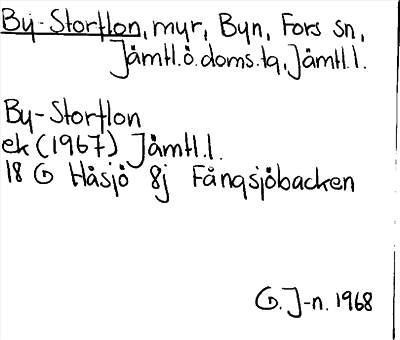 By-Storflon, myr, Byn, Fors sn,
Jämtl.ö.doms.tg, Jämtl.l.
By-Storflon
ek (1967) Jämtl.l.
18 G Håsjö 8j Fångsjöbacken
G. J-n. 1968